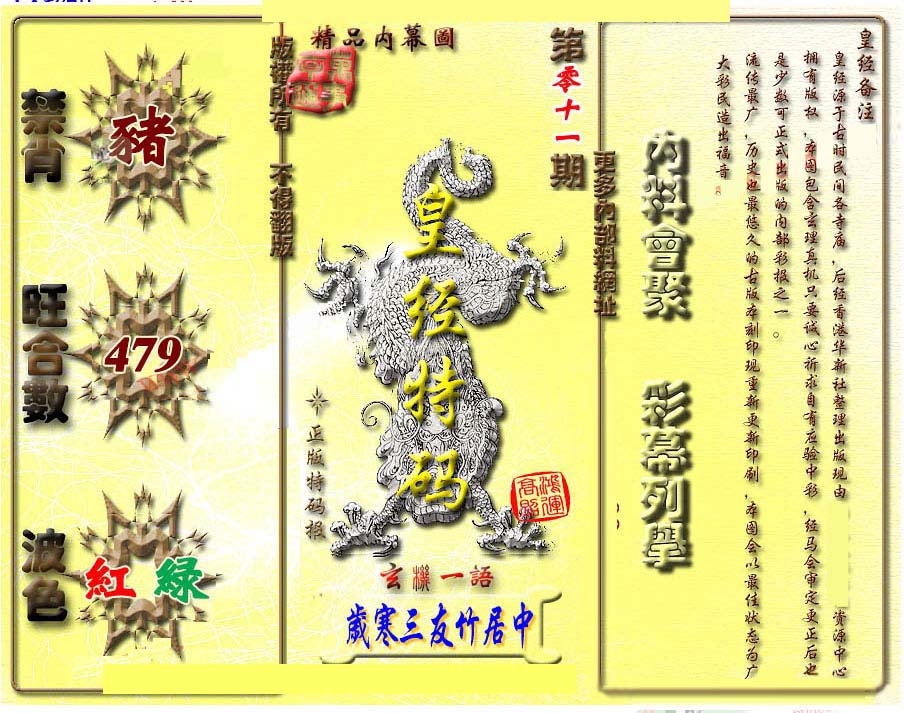 精品内幕圖
第零十一期
版權所有 不得翻版
更多內部料網址
禁肖
豬
旺合數
479
波色
紅 緑
皇经特码
正版特码报
鴻運高照
玄機一語
歲寒三友竹居中
內料會聚 彩幕列舉
皇经备注
皇经源于古时民间各寺庙,后经香港华新社整理出版现由 资源中心
拥有版权,本图包含玄理真机只要诚心祈求自有应验中彩,经马会审定更正后也
是少数可正式出版的内部彩报之一。
流传最广,历史也最悠久的古版本刻印现重新更新印刷,本图会以最佳状态为广
大彩民造出福音